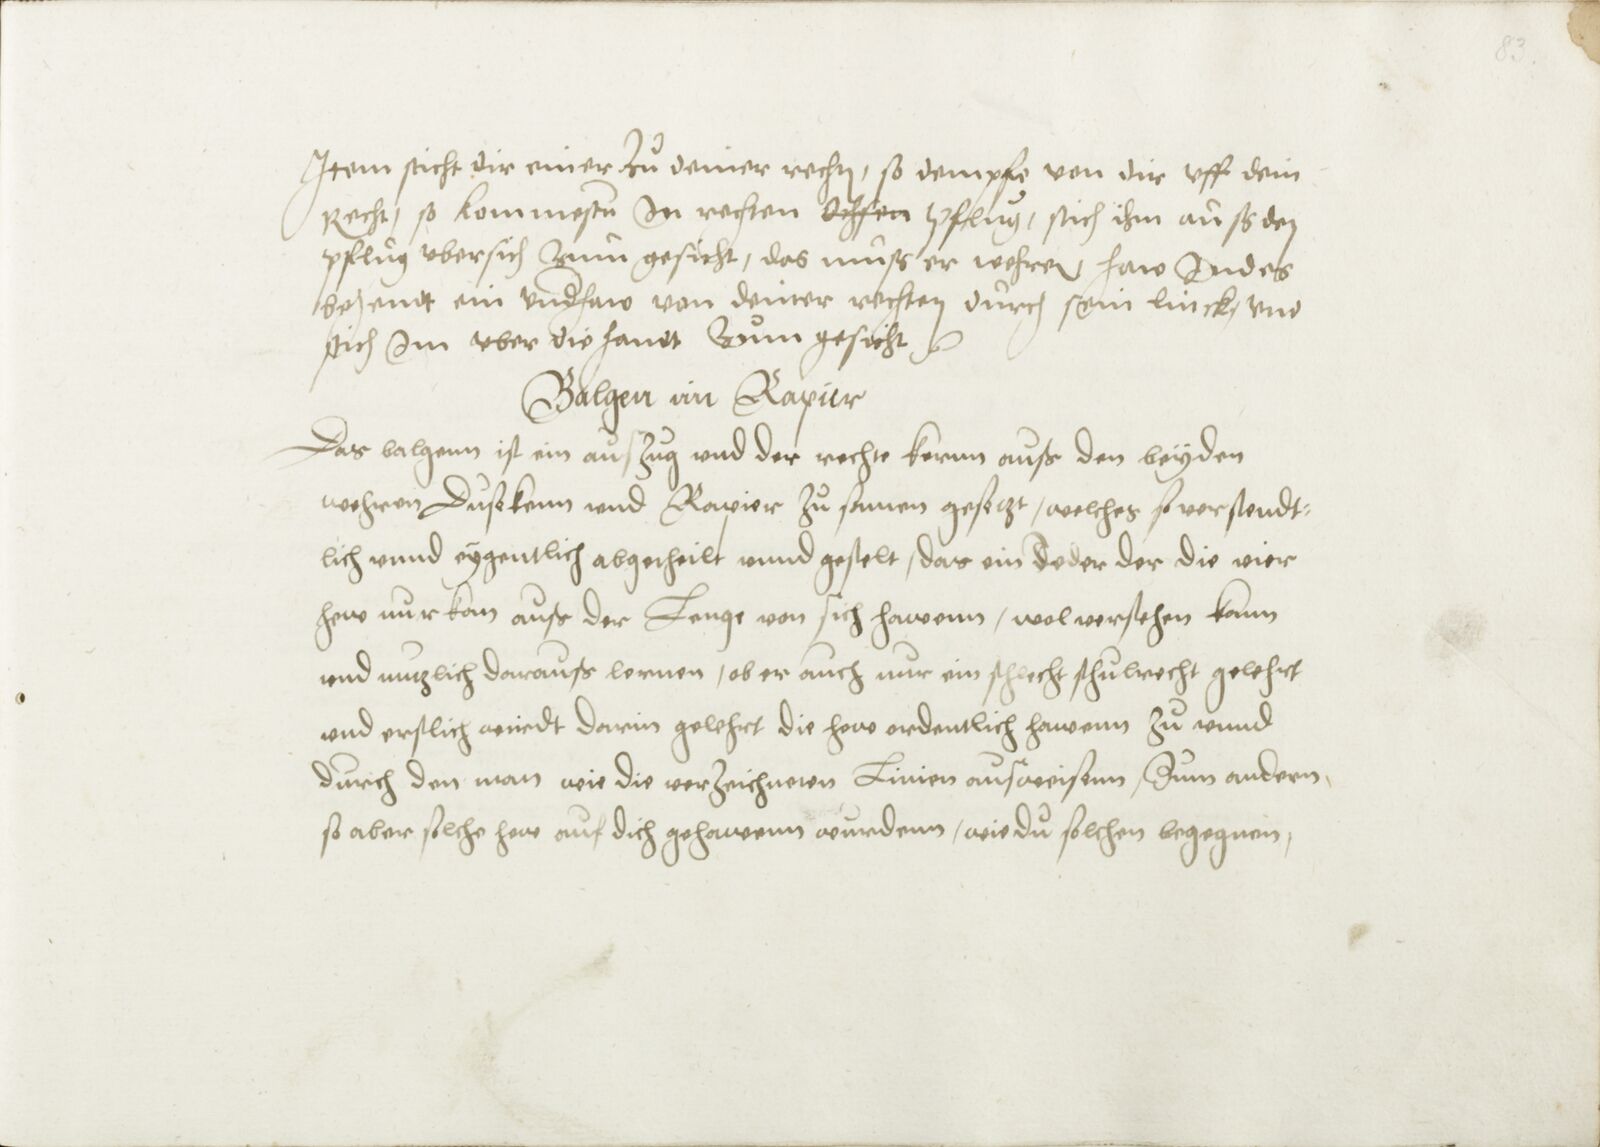 83.
Item sticht dir einer Zu deiner rechten, so dempfe von dir vff dein
Recht, so kommestu In rechten Pflug, stich ihm auß dem
pflug vbersich Zum gesicht, das muß er wehren, haw Indes
behendt ein vndhaw von deiner rechten durch sein linck, vnd
stich Im vber die handt Zum gesicht
Balgen im Rapier
Das balgenn ist ein ausZug vnd der rechte kernn auß den beyden
wehren Dusekenn vnd Rapier Zu samen gesetzt, welches so verstendt=
lich vnnd eygentlich abgetheilt vnnd gestelt, das ein Jeder der die vier
hew nur kan auß der Lenge von sich hawenn, wol verstehen kann
vnd nutzlich darauß lernen, ob er auch nur ein schlecht schulrecht gelehrt
vnd erstlich wirdt darin gelehrt die hew ordentlich hawenn Zu vnnd
durch den man wie die verZeichneten Linien ausweisenn, Zum andern,
so aber solche hew auf dich gehawenn wurdenn, wie du solchen begegnen,